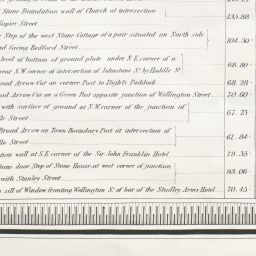 Stone Foundation wall of Church at intersection
Napier Street 133.88
Step of the west Stone Cottage of a pair situated on North side
and facing Bedford Street 104.50
level of bottom of ground plate under N.E. corner of a
near S.W. corner of intersection of Johnstone St by Huddle St 68.80
Broad Arrow Cut on corner Post to Dights Paddock 68.28
Broad Arrow Cut on a Green Post opposite junction of Wellington Street 70.60
with surface of ground at N.W. corner of the junction of
Street 67.23
Broad Arrow on Town Boundary Post at intersection of
Street 61.84
tion wall at S.E. corner of the Sir John Franklin Hotel 79.35
Stone door Step of Stone House at west corner of junction
with Stanley Street 93.06
sill of Window fronting Wellington St of bar of the Studley Arms Hotel 70.45